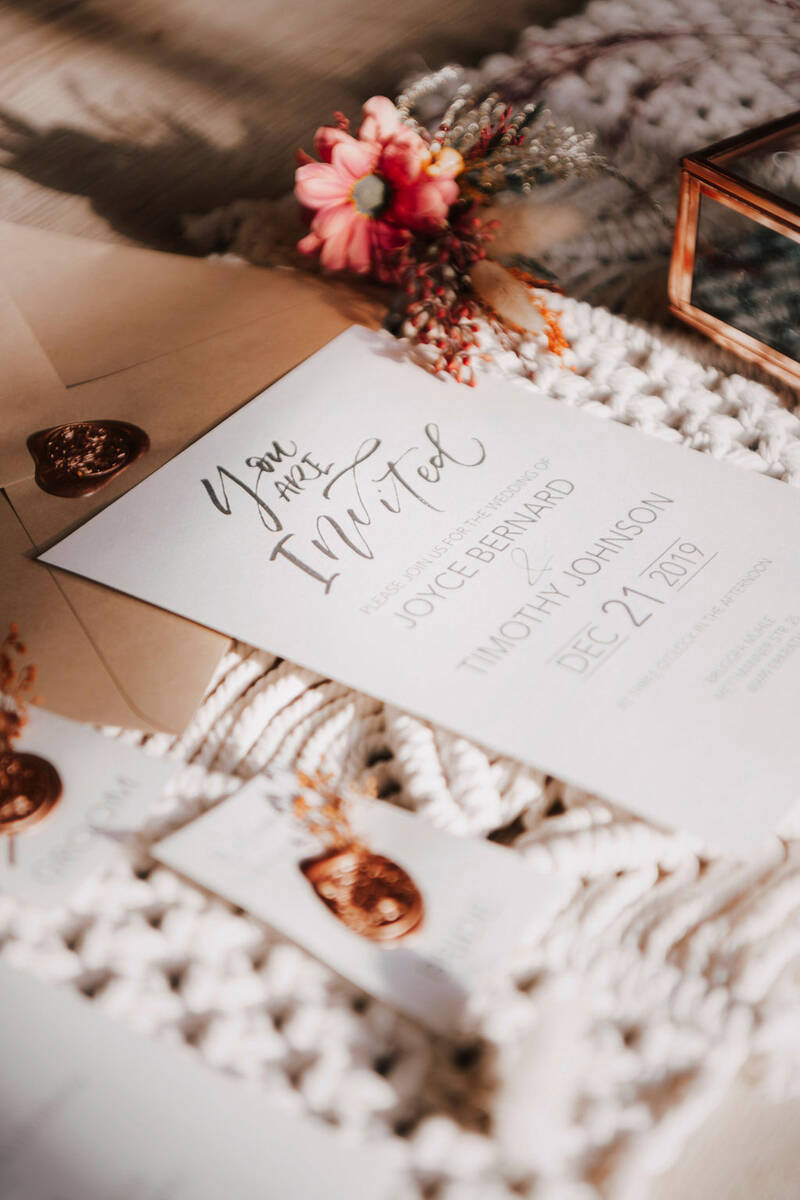 You
ARE
Invited
PLEASE JOIN US FOR THE WEDDING OF
JOYCE BERNARD
&
TIMOTHY JOHNSON
DEC 21 2019
AT THREE O'CLOCK IN THE AFTERNOON
GROOM
BRIDE